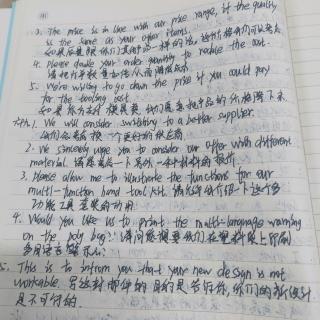 3. The price is in line with our price range, if the quality
is the same as your other items.
4. Please double your order quantity to reduce the cost.
请把订单数量加倍从而降低成本.
5. We're willing to go down the price if you could pay
for the tooling cost.
1. We will consider switching to a better supplier.
我们会考虑换一个更好的供应商.
2. We sincerely urge you to consider our offer with different
material.
3. Please allow me to illustrate the functions for our
multi-function hand tool kit. 请允许我介绍一下这个多
功能工具套装的功用.
4. Would you like us to print the multi-language warning
on the poly bag? 请问您想要我们在塑料袋上印刷
多国语言警示
5. This is to inform you that your new design is not
workable. 写这封邮件的目的是告诉你, 你们的新设计
是不可行的.